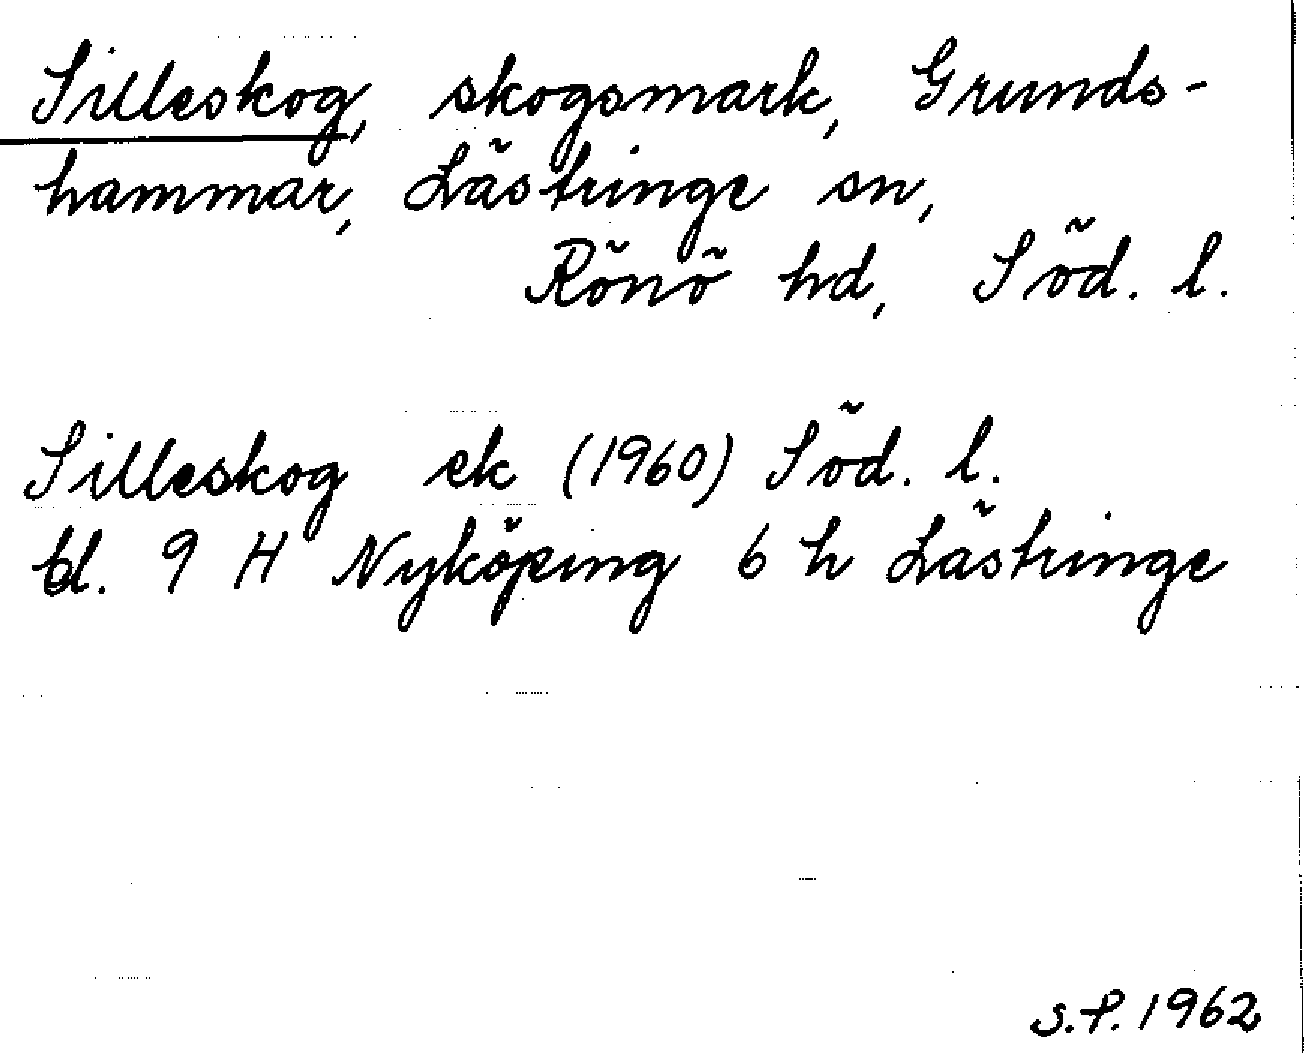 Silleskog, skogsmark, Grunds-
hammar, Lästringe sn,
Rönö hd, Söd. l.
Silleskog ek (1960) Söd. l.
bl. 9 H Nyköping 6 h Lästringe
S.P. 1962